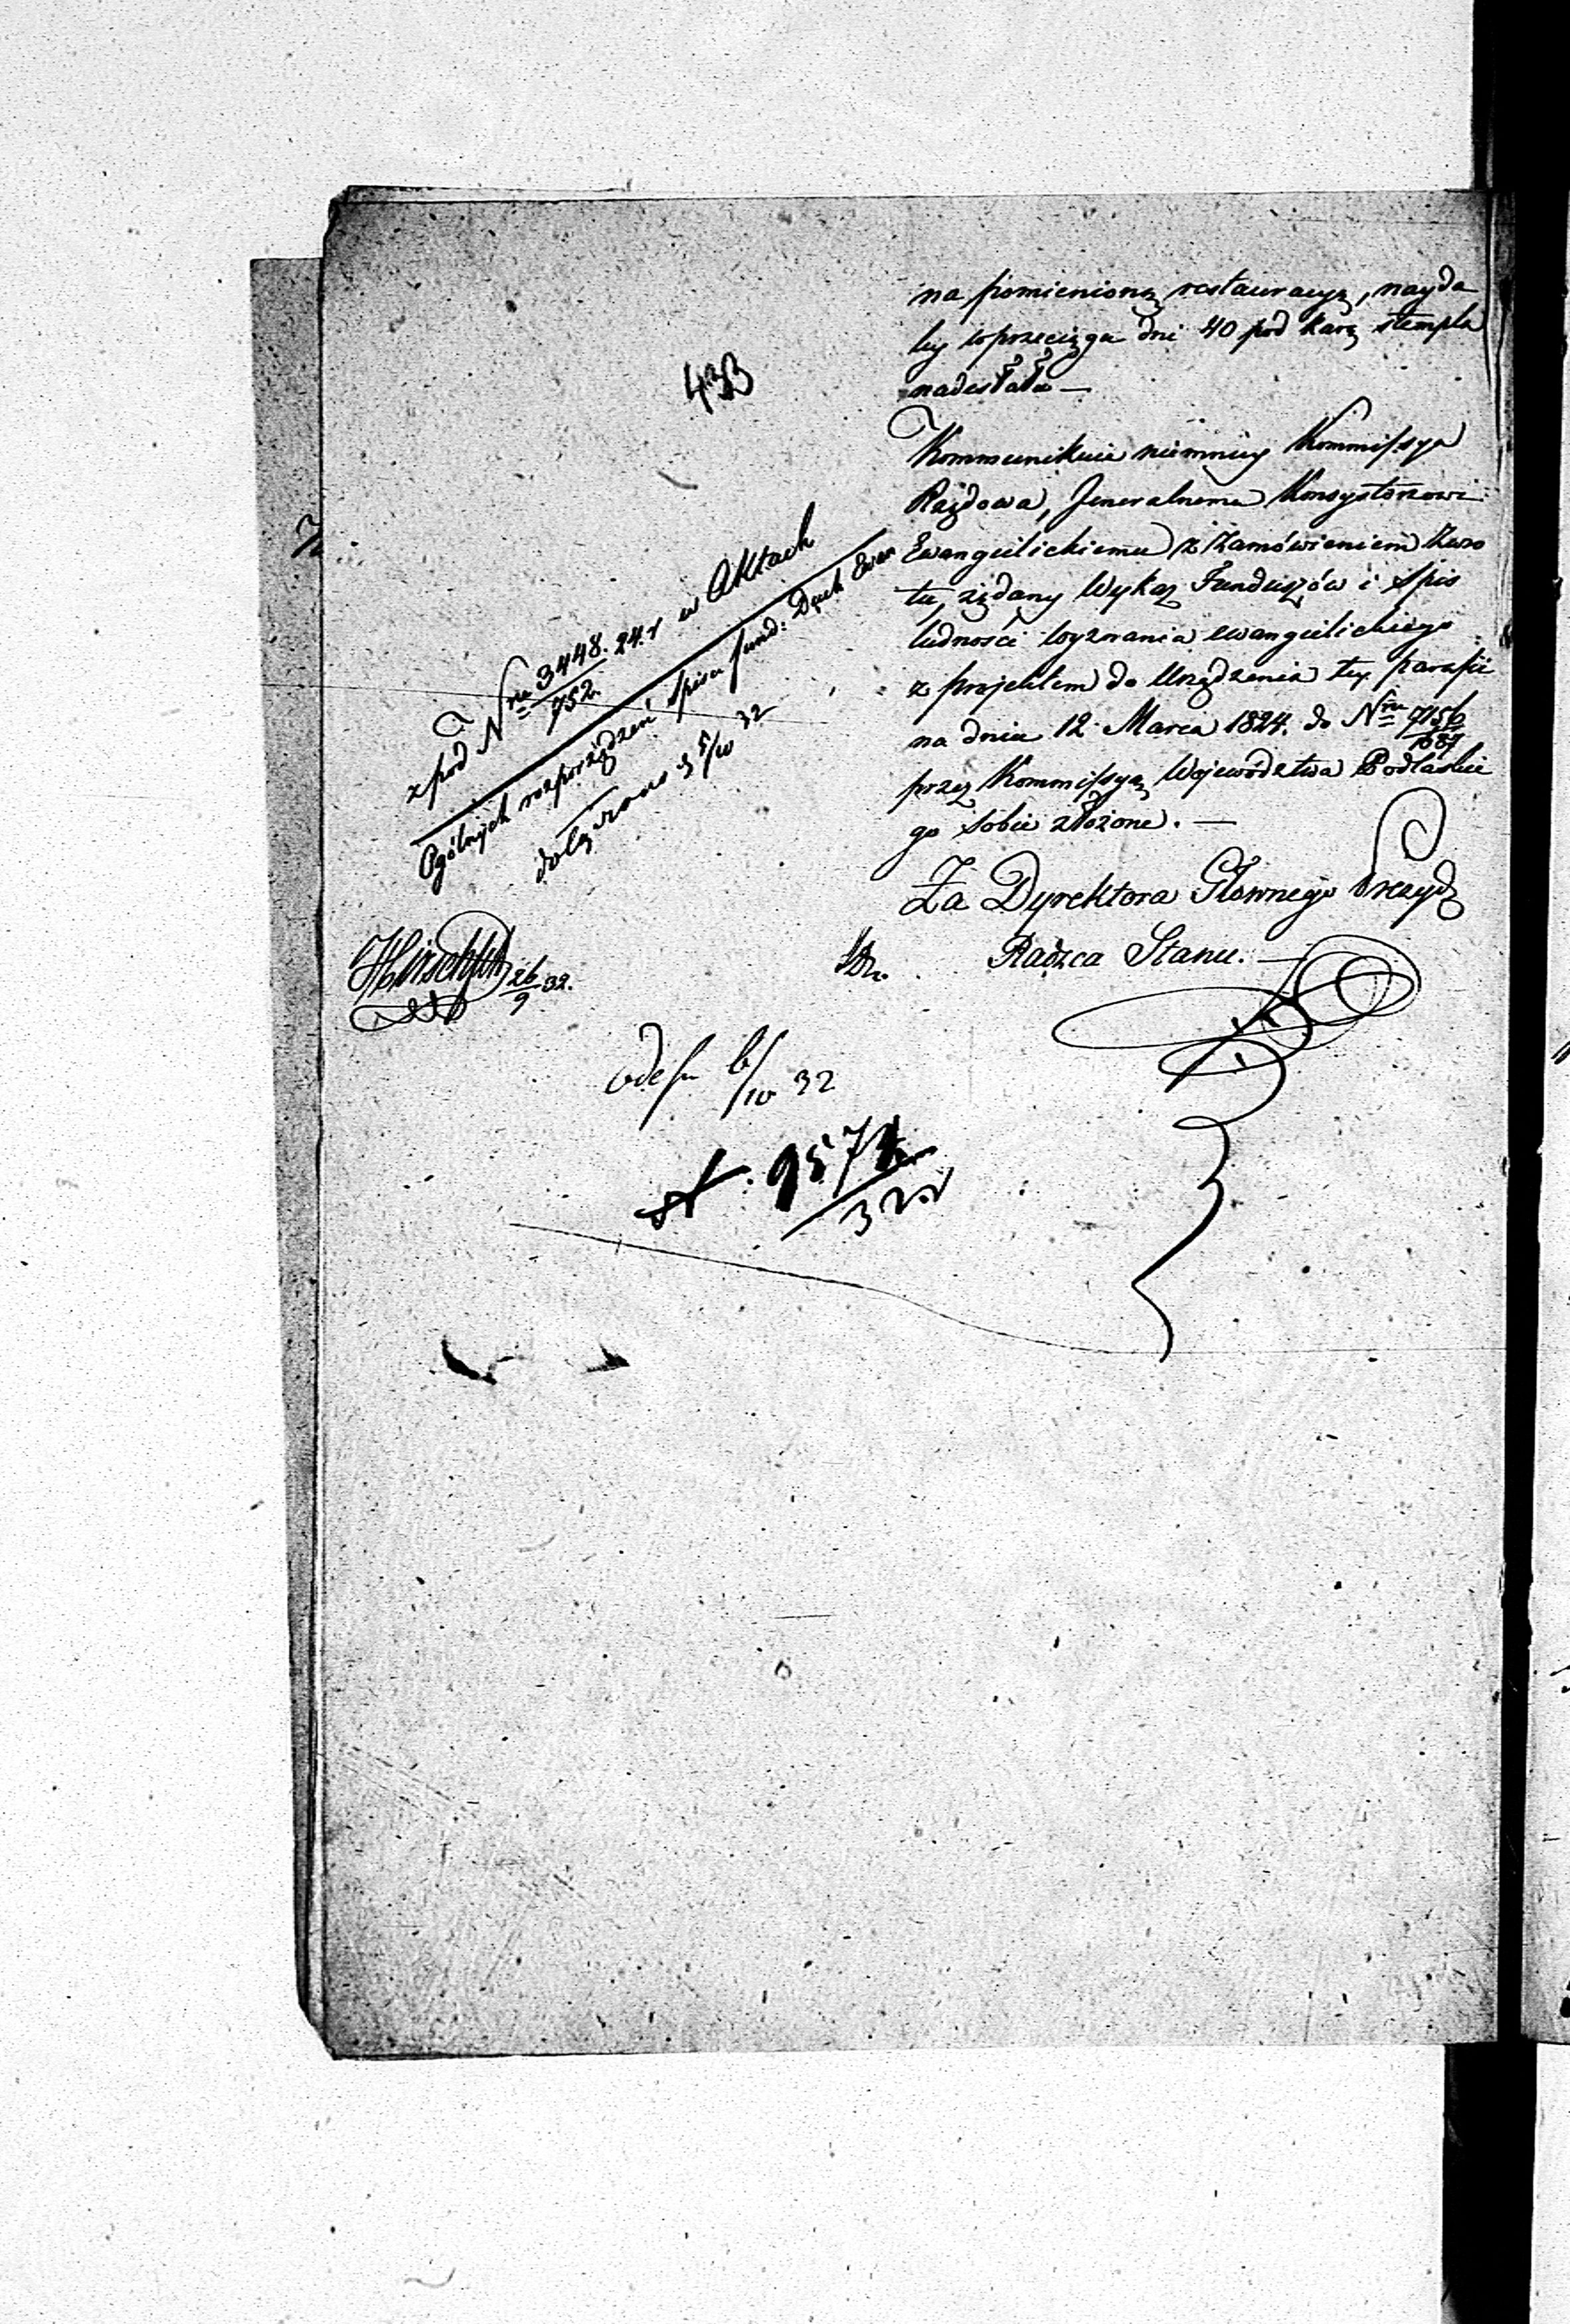 433
na pomienioną restauracyą, nayda
ley w przeciągu dni 40 pod karą stempla
nadesłała —
Kommunikuie niemniey Kommissya
Rządowa, Jeneralnemu Konsystorzowi
Ewangielickiemu z zamówieniem zwro
tu, żądany Wykaz Funduszów i Spis
ludności wyznania ewangielickiego
z projektem do Urządzenia tey parafii
na dniu 12 Marca 1824. do Nru 7156/1687
przez Kommissyą Województwa Podlaskie
go sobie złożone. —
Za Dyrektora Głownego Prezyd
Radzca Stanu. —
z pod Nru 3448./752. 24. r w Aktach
Ogólnych rozporządzeń Spisu fund: Duch Ewan
dołączono d 5/10 32
26/9 32.
6/10 32
N. 957
32